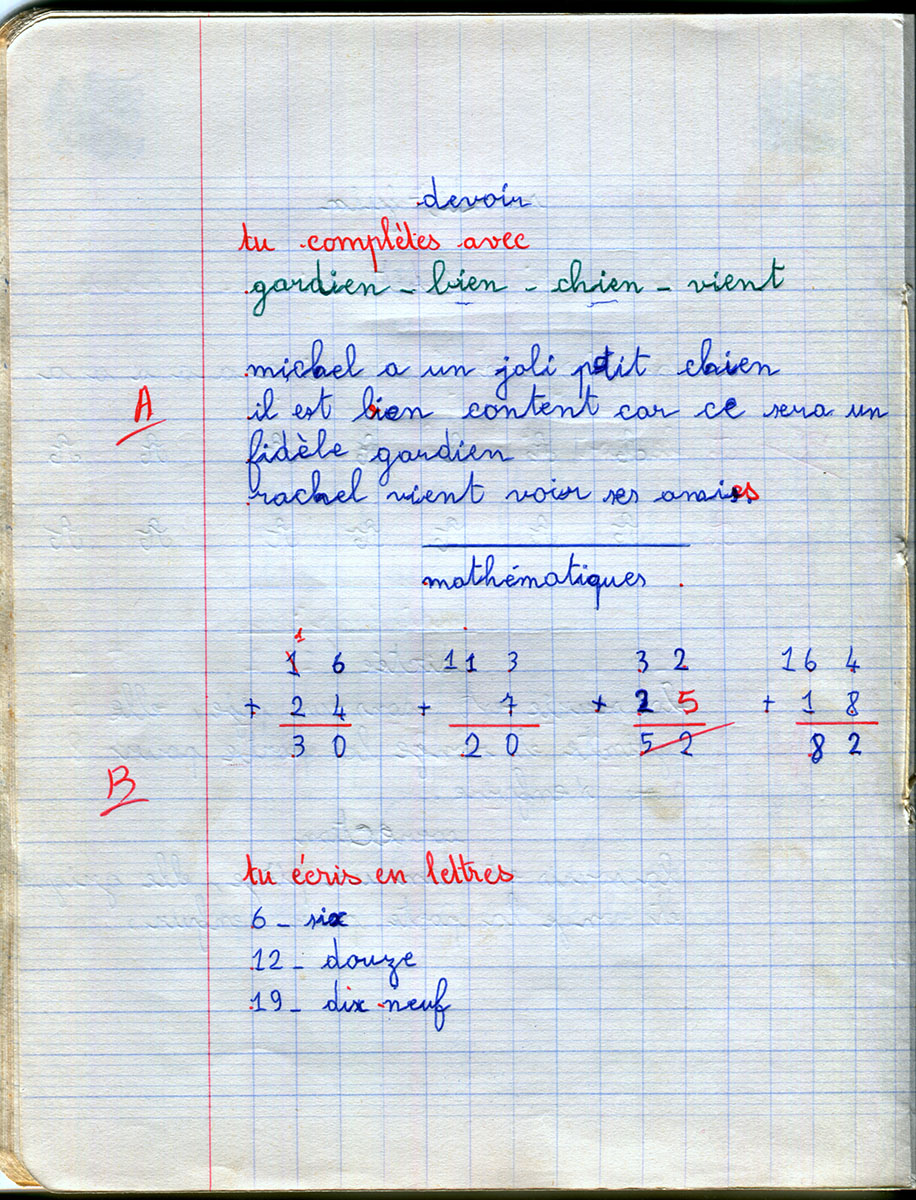 devoir
tu complètes avec
gardien - bien - chien - vient
michel a un joli petit chien
A
il est bien content car ce sera un
fidèle gardien
rachel vient voir ses amies
mathématiques
1
1 6 11 3 3 2 16 4
+ 2 4 + 7 + 2 5 + 1 8
3 0 2 0 5 2 8 2
B
tu écris en lettres
6 - six
12 - douze
19 - dix neuf